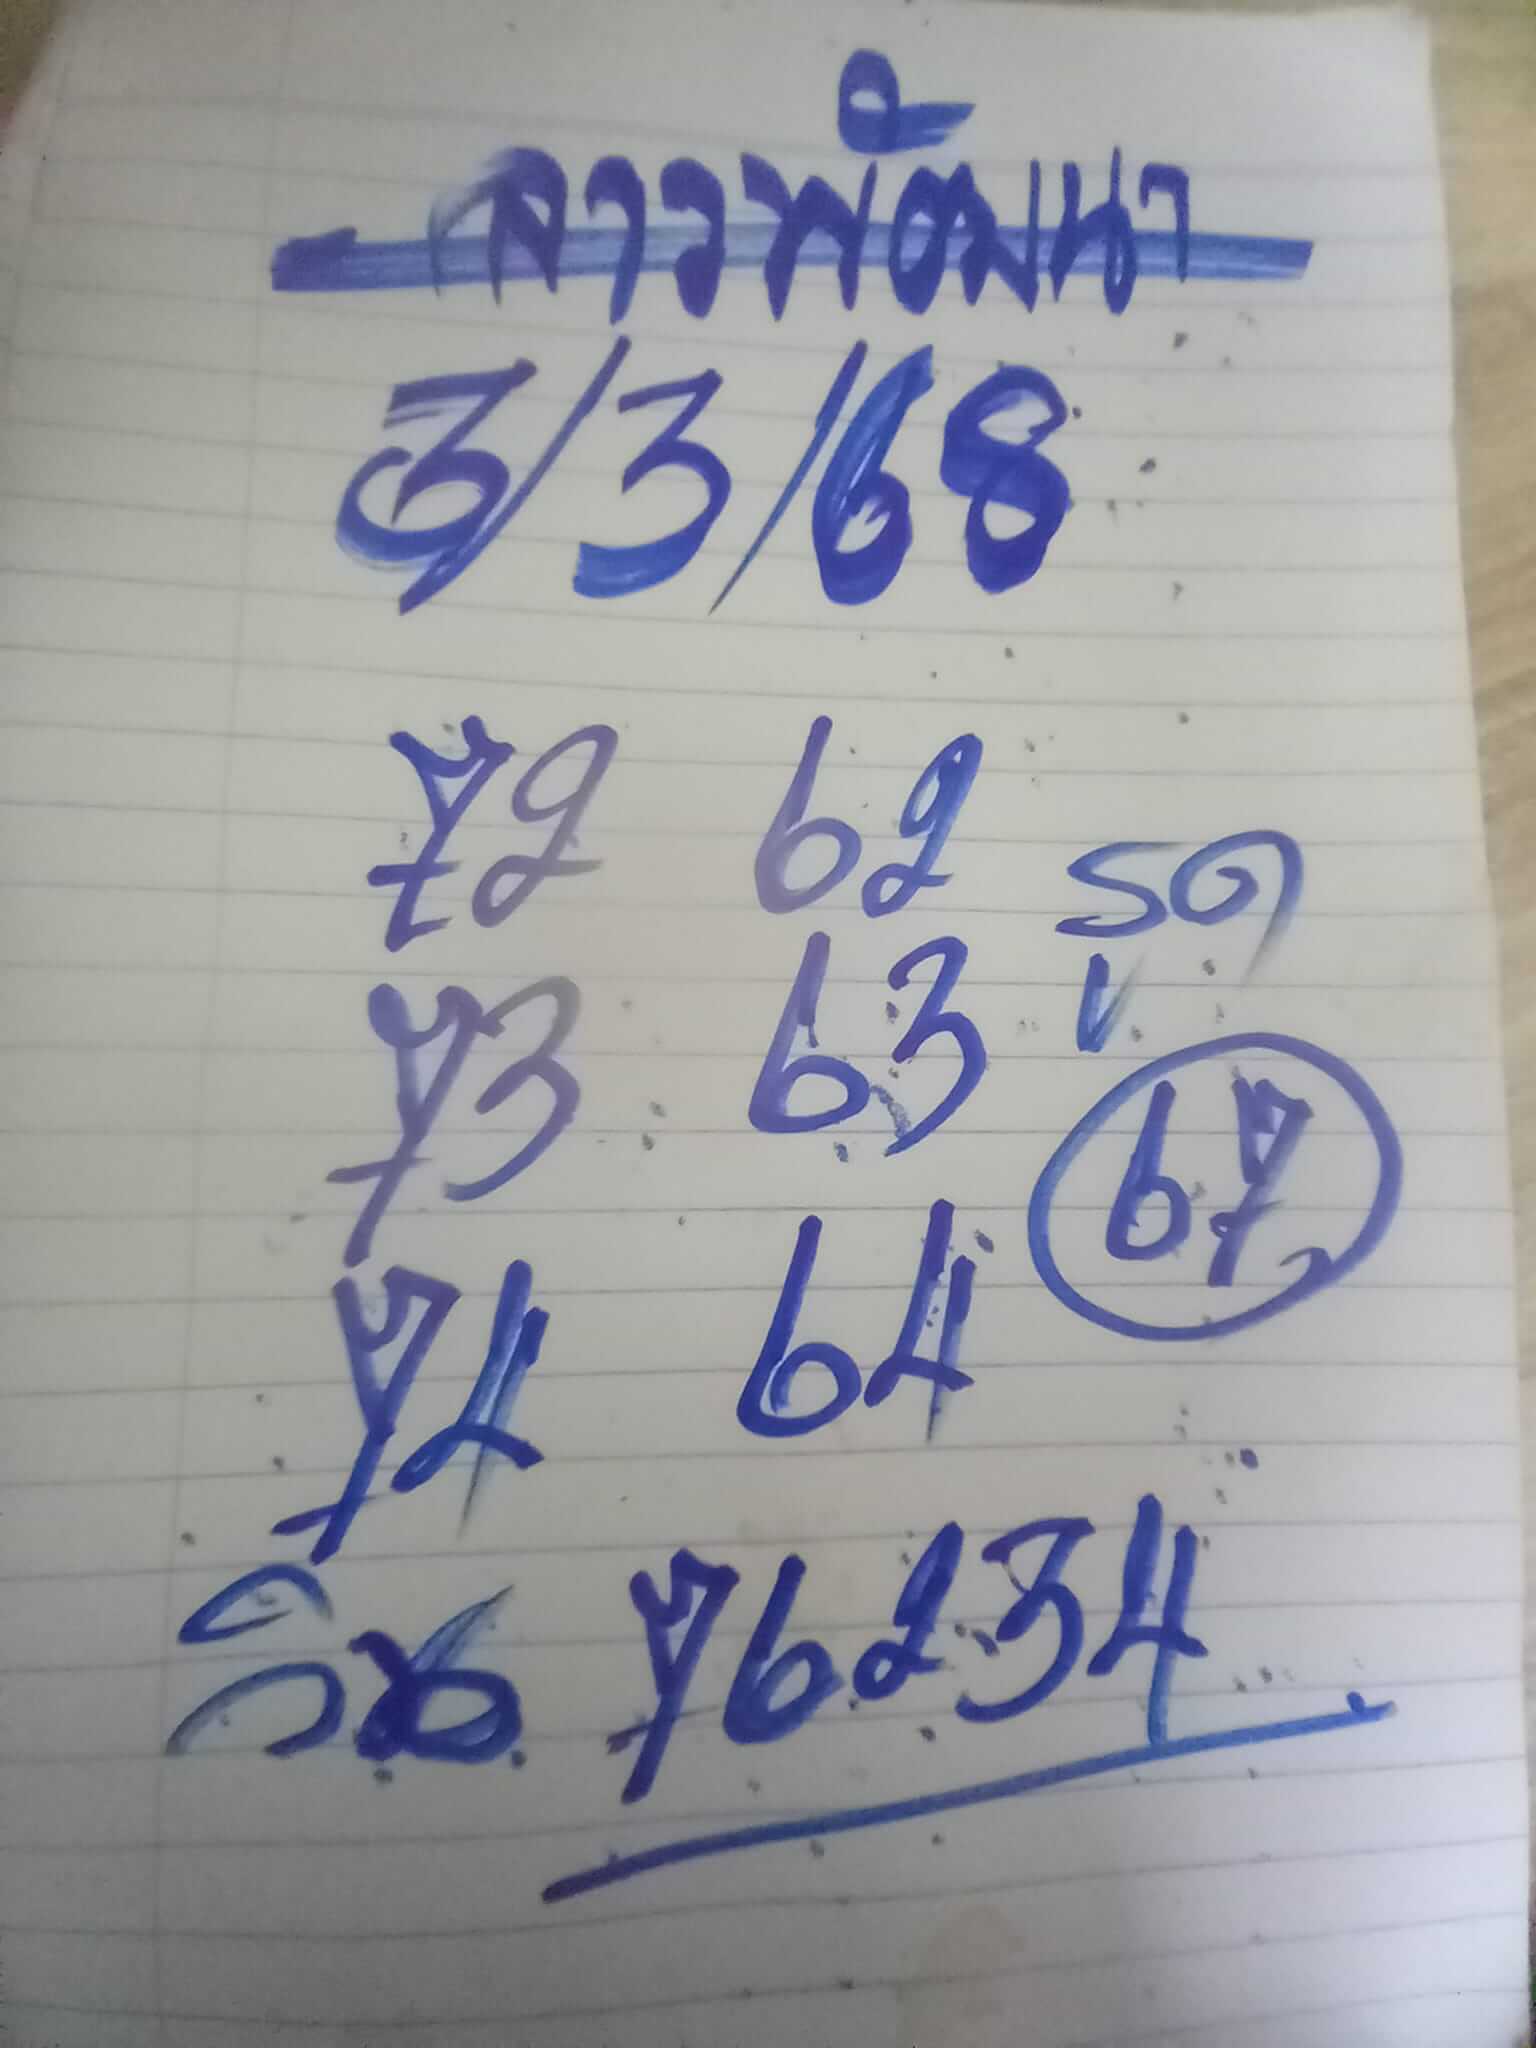 ลาวพัฒนา
3/3/68
72 62
รูด
73 63
67
74 64
วิน 76234